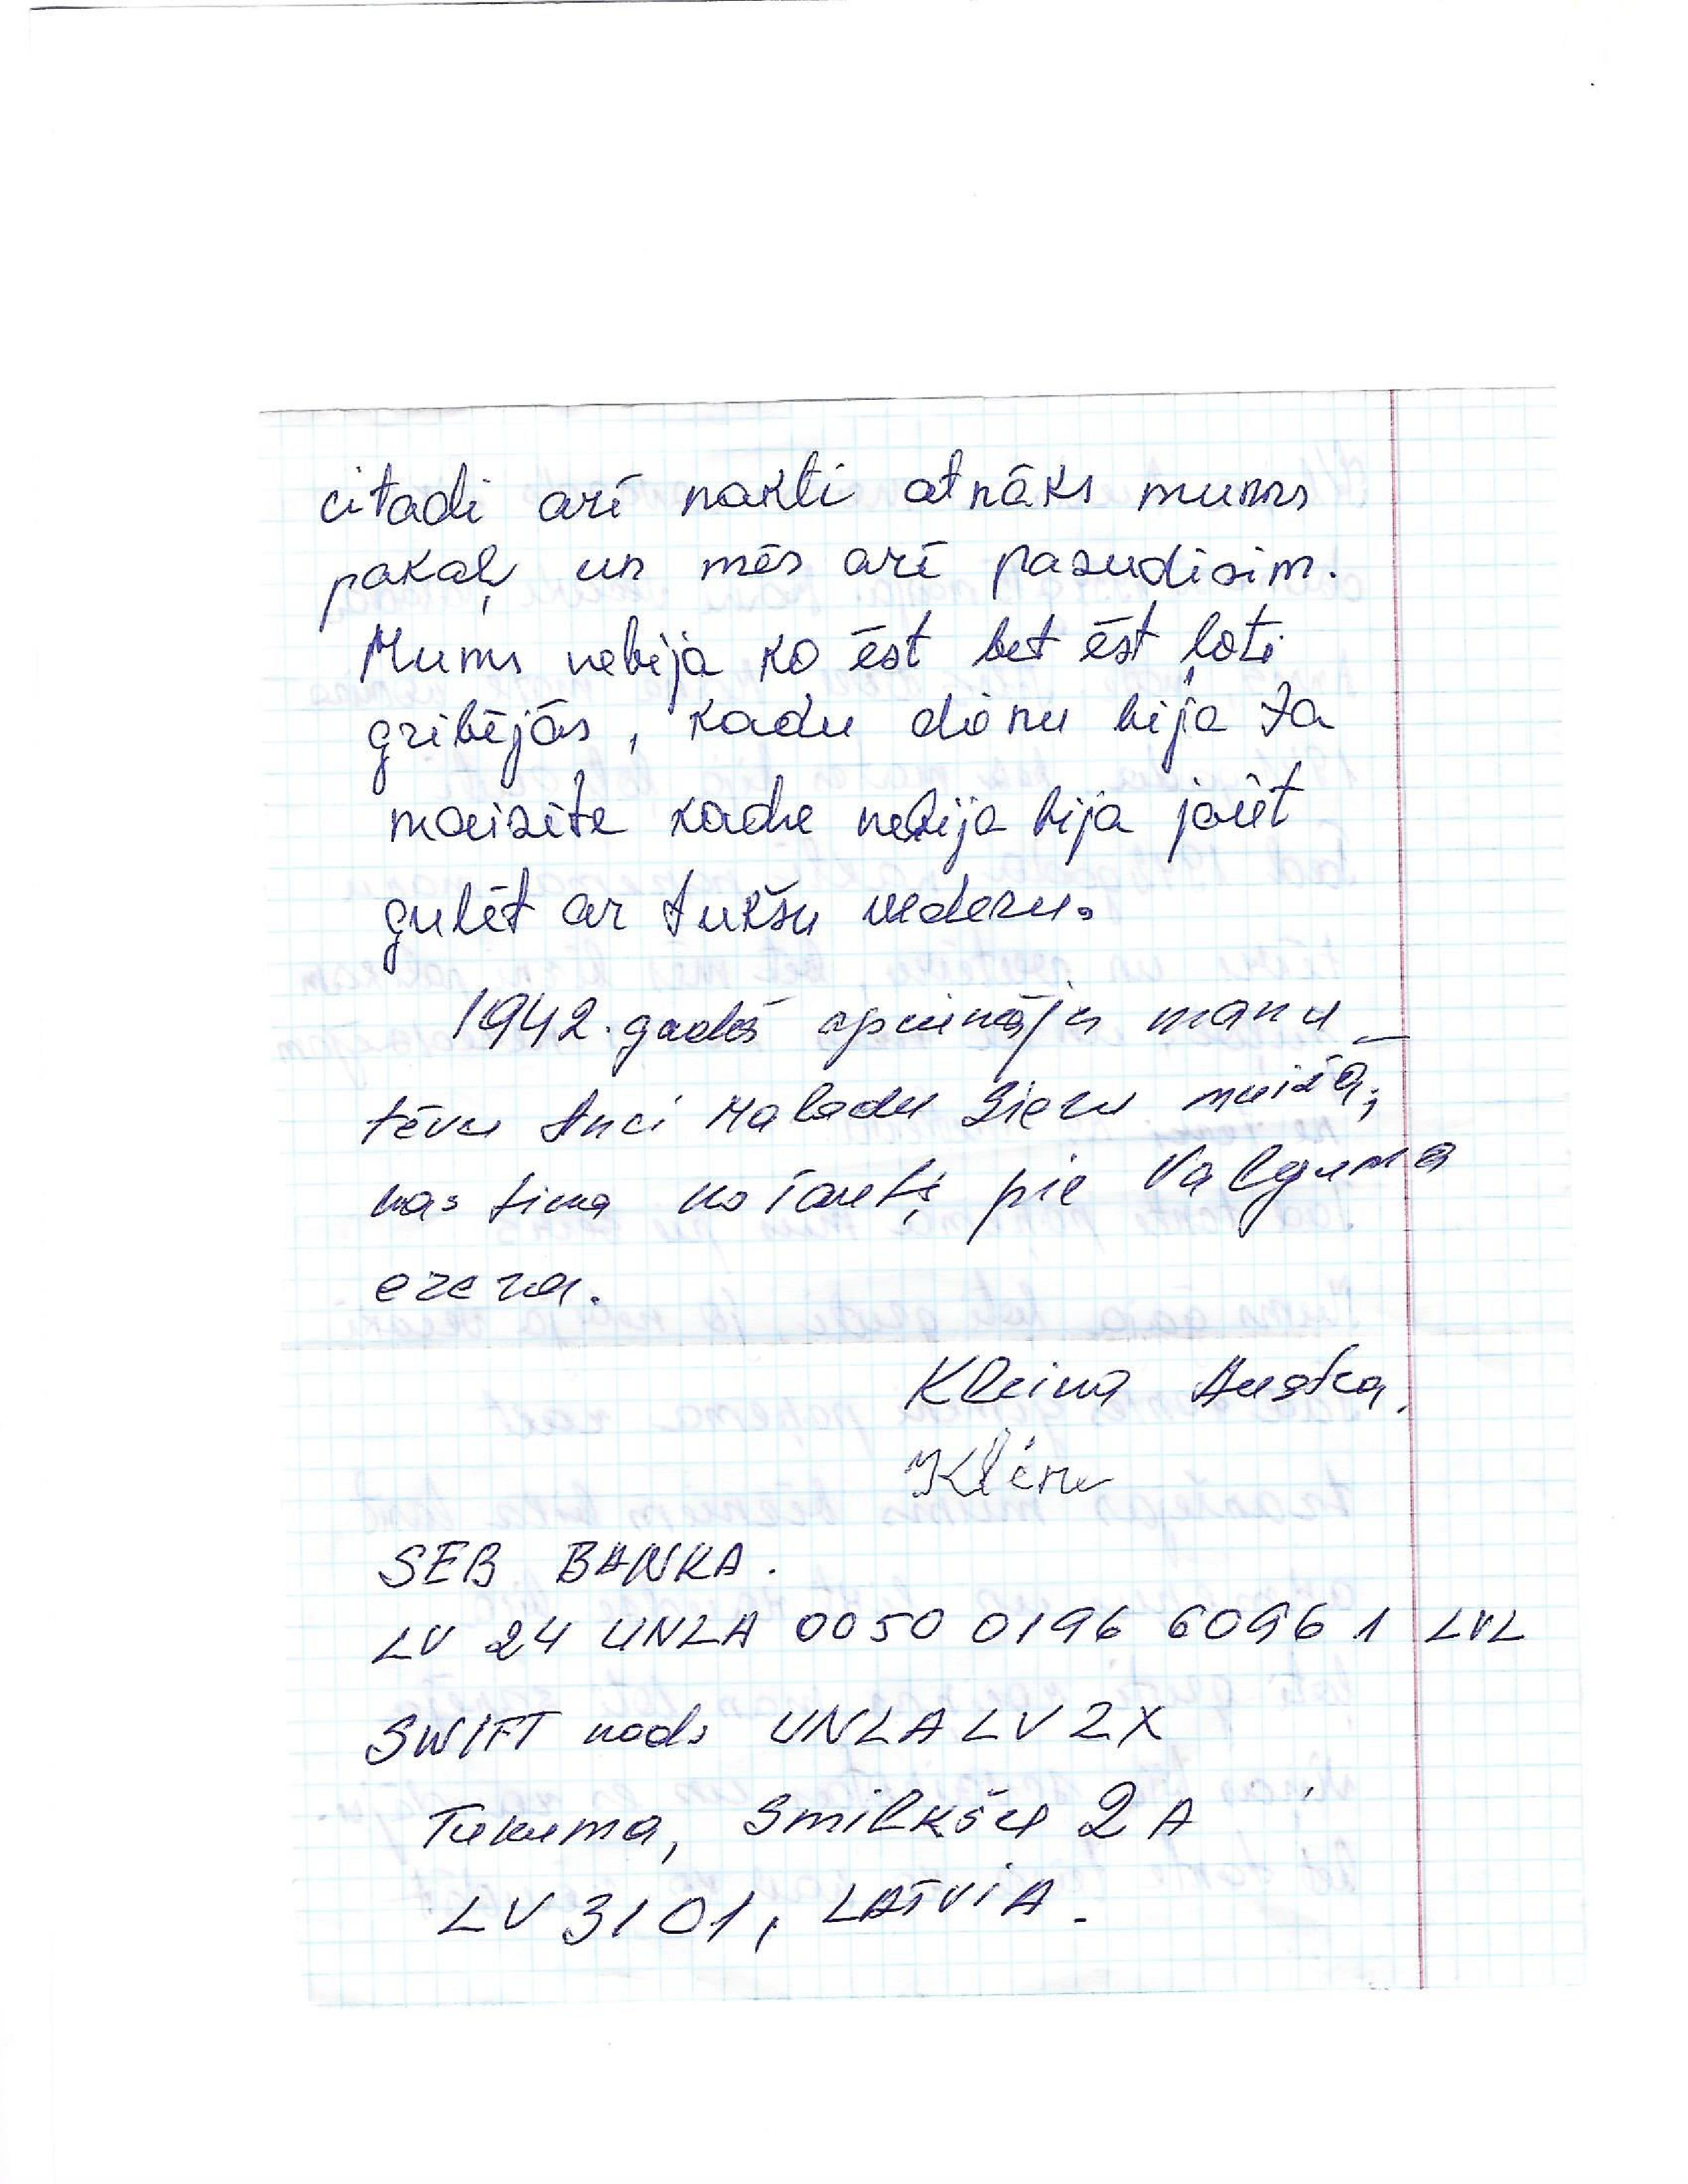 citadi arī nakti atnāks mums
pakaļ un mēs arī pasudisim.
Mums nebija ko ēst bet ēst ļoti
gribējās, kadu dienu bija ta
maizite kadu nebija bija jaiet
gulēt ar tukšu vederu.
1942. gadā apcināja manu
tēvu Anci Maladu Sieru muižā,
kas tika no šauts pie Valguma
ezera.
Kleina Austra.
SEB BANKA.
LV 24 UNLA 0050 0196 6096 1 LVL
SWIFT kods UNLALV2X
Tukuma, Smilkšu 2A
LV 3101, LATVIA.